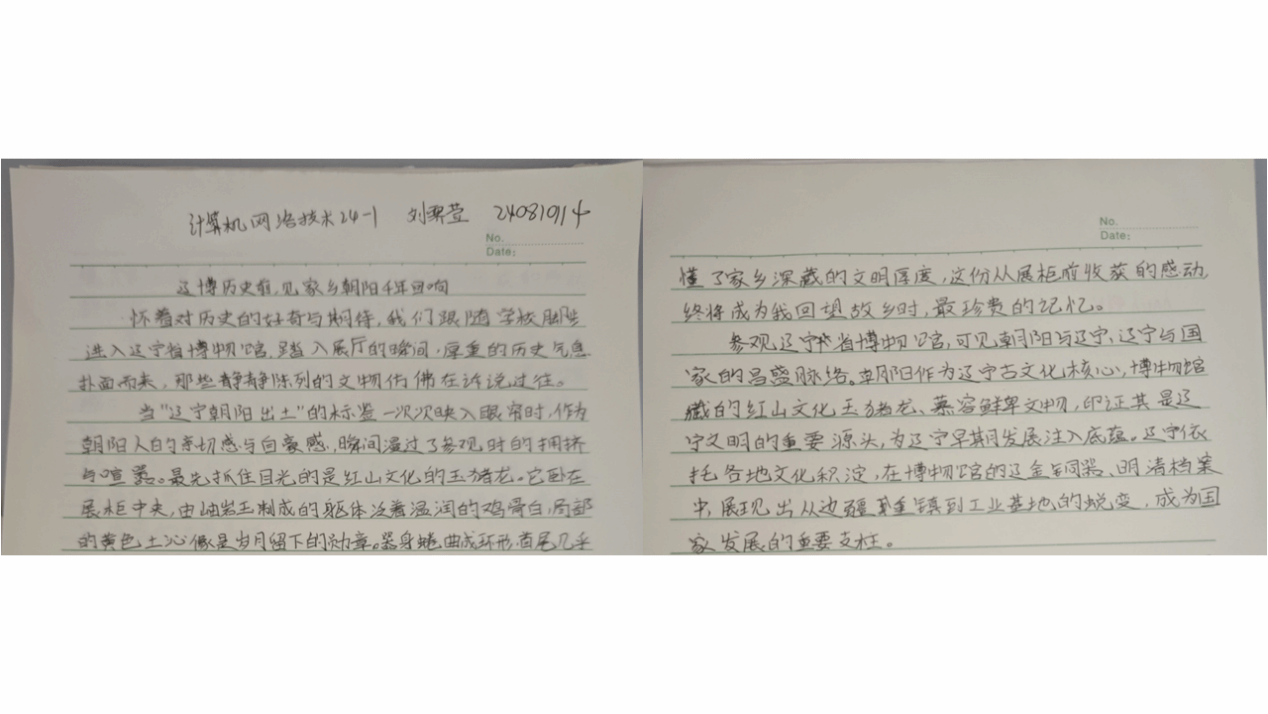 计算机网络技术24-1 刘霁萱 24081011十
No.
Date:
辽博历史前,见家乡朝阳千年回响
怀着对历史的好奇与期待,我们跟随学校脚步
进入辽宁省博物馆,踏入展厅的瞬间,厚重的历史气息
扑面而来,那些静静陈列的文物仿佛在诉说过往。
当“辽宁朝阳出土”的标签一次次映入眼帘时,作为
朝阳人的亲切感与自豪感,瞬间漫过了参观时的拥挤
与喧嚣。最先抓住目光的是红山文化的玉猪龙。它卧在
展柜中央,由岫岩玉制成的躯体泛着温润的鸡骨白,局部
的黄色土沁像是岁月留下的勋章。器身蜷曲成环形,首尾几乎
No.
Date:
懂了家乡深藏的文明厚度,这份从展柜前收获的感动
终将成为我回望故乡时,最珍贵的记忆。
参观辽宁省博物馆,可见朝阳与辽宁、辽宁与国
家的昌盛脉络。朝阳作为辽宁古文化核心,博物馆
藏的红山文化玉猪龙、慕容鲜卑文物,印证其是辽
宁文明的重要源头,为辽宁早期发展注入底蕴。辽宁依
托各地文化积淀,在博物馆的辽金铜器、明清档案
中,展现出从边疆重镇到工业基地的蜕变,成为国
家发展的重要支柱。